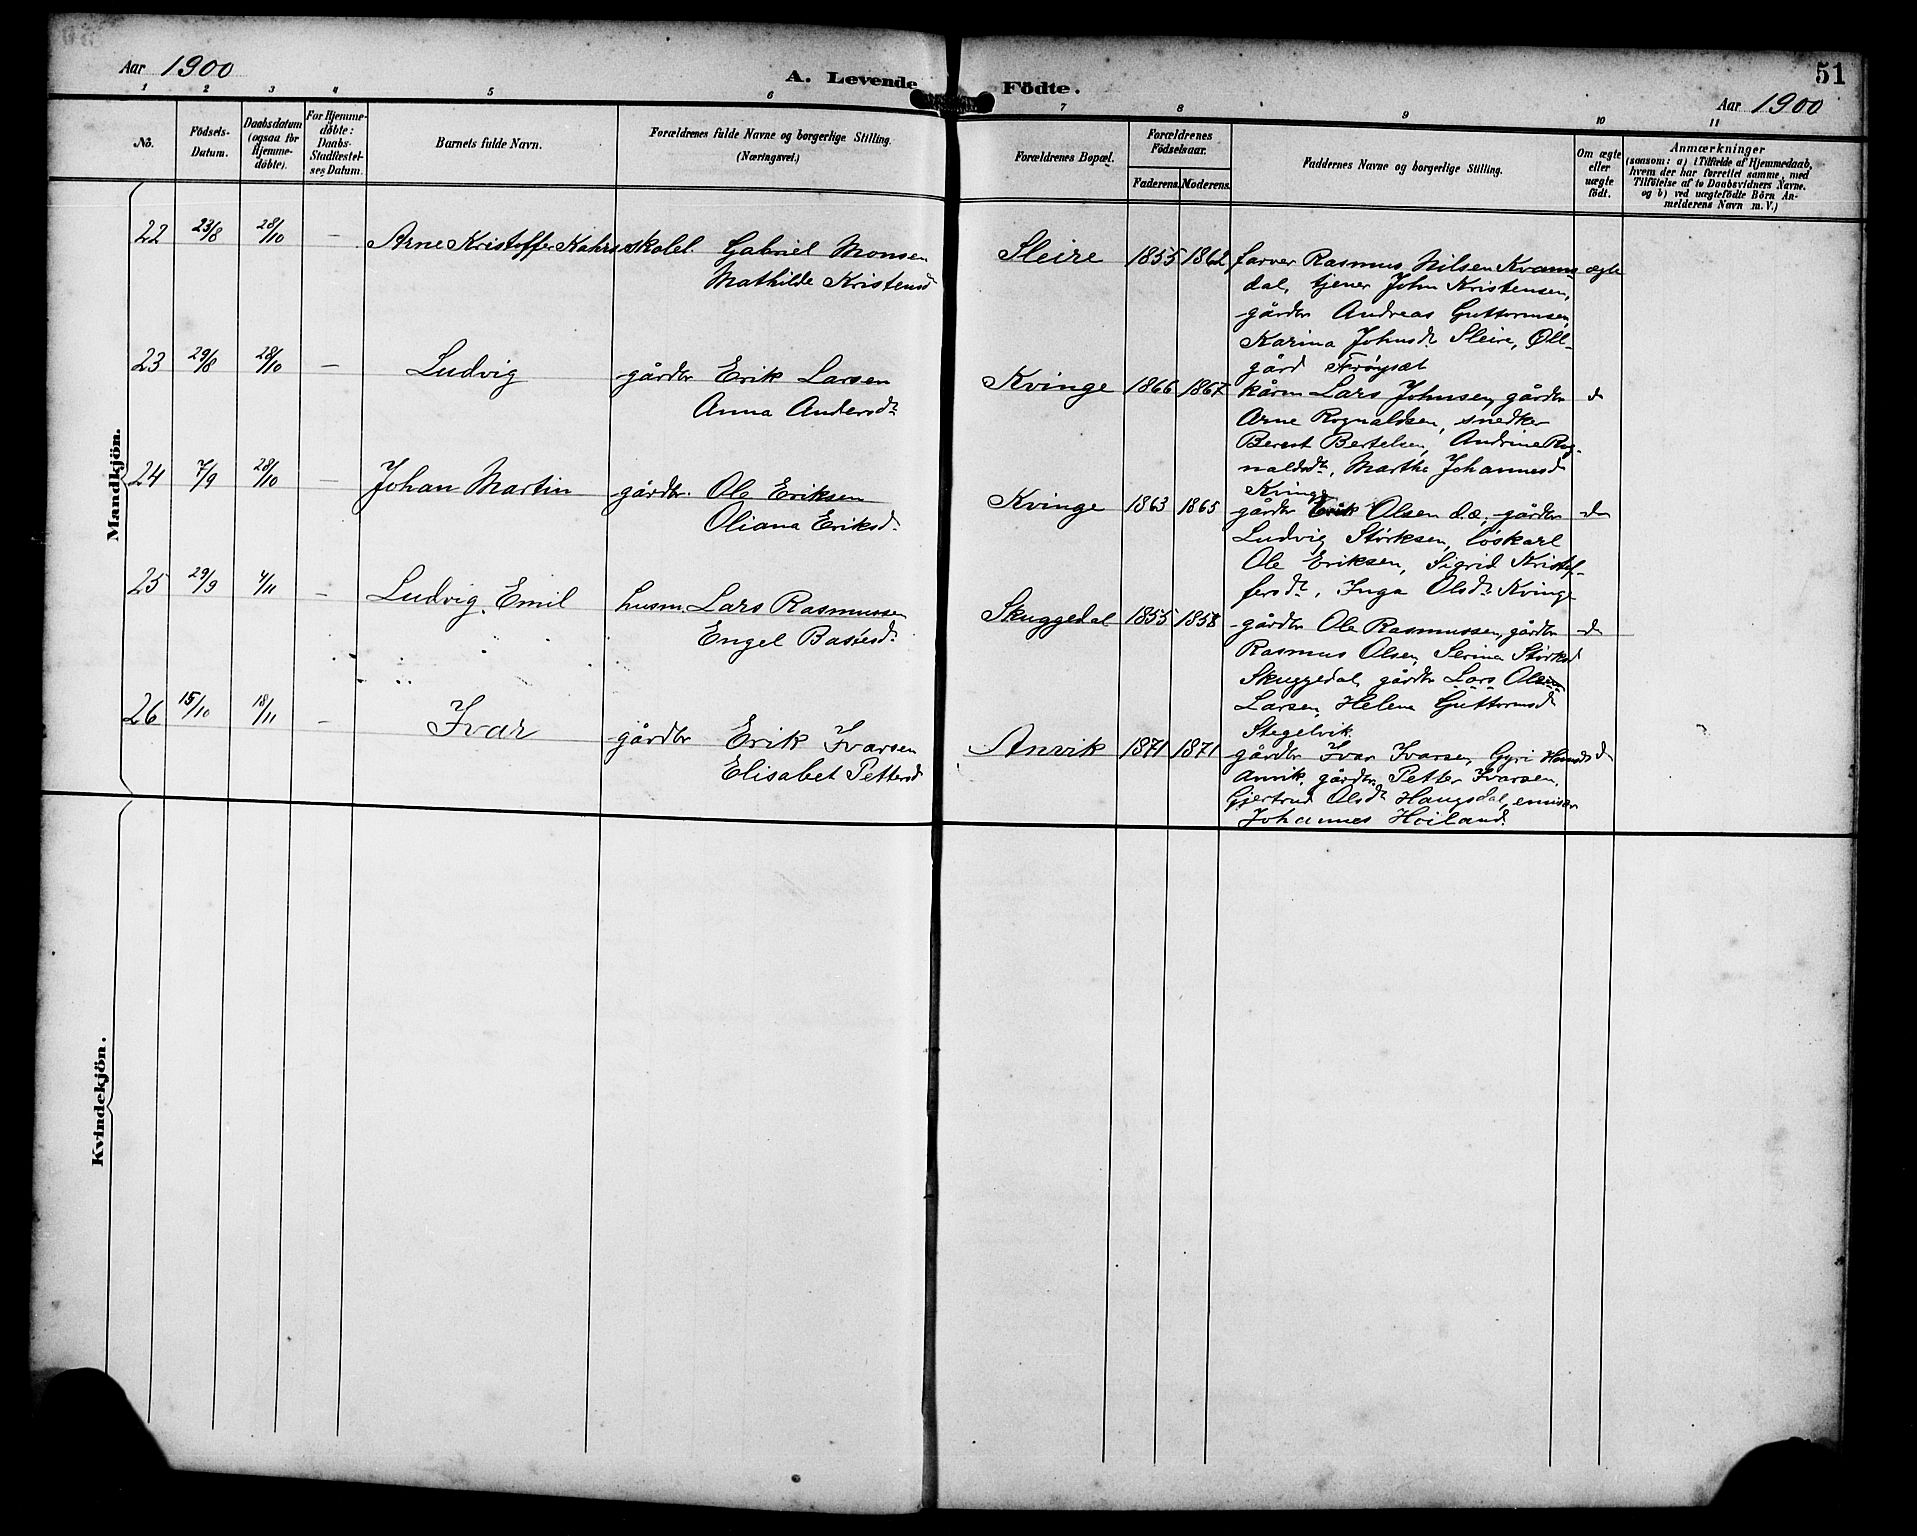 Aar 1900
A. Levende Födte.
51
Aar 1900
1 2 3 4 5 6 7 8 9 10 11
No.
Födsels-
Datum.
Daabsdatum
(ogsaa for
Hjemme-
döbte).
For Hjemme-
döbte:
Daabs-
Stadfæstel-
ses Datum.
Barnets fulde Navn.
Forældrenes fulde Navne og borgerlige Stilling.
(Næringsvei.)
Forældrenes Bopæl.
Forældrenes
Födselsaar.
Faderens. Moderens.
Faddernes Navne og borgerlige Stilling.
Om ægte
eller
uægte
födt.
Anmærkninger
(saasom: a) i Tilfælde af Hjemmedaab,
hvem der har forrettet samme, med
Tilföielse af to Daabsvidners Navne.
og b) ved uægtefödte Börn An-
melderens Navn m. V.)
Mandkjön.
22 23/8 28/10 — Arne Kristoffer Kahrs skolel. Gabriel Monsen
Mathilde Kristensd
Sleire 1855 1862 farver Rasmus Nilsen Kvams- ægte
dal, tjener John Kristensen,
gårdbr Andreas Guttormsen,
Karina Johnsdt Sleire, Oll-
gård Frøysæt
23 29/8 28/10 — Ludvig gårdbr Erik Larsen
Anna Andersdt
Kvinge 1866 1867 kårm Lars Johnsen, gårdbr d
Arne Rognaldsen, snedker
Berent Bertelsen, Andrine Rog-
naldsdt, Marthe Johannesd
Kvinge
24 7/9 28/10 — Johan Martin gårdbr. Ole Eriksen
Oliana Eriksdt
Kvinge 1863 1865 gårdbr Erik Olsen d.æ., gårdbr d
Ludvig Størksen, løskarl
Ole Eriksen, Sigrid Kristof-
fersdt, Inga Olsdt Kvinge
25 29/9 4/11 — Ludvig Emil husm. Lars Rasmussen
Engel Basiesdt
Skuggedal 1855 1858 gårdbr Ole Rasmussen, gårdbr d
Rasmus Olsen, Serina Størksd
Skuggedal, gårdbr Lars Olsen
Larsen, Helena Guttormsd
Stegelvik
26 15/10 18/11 — Ivar gårdbr Erik Ivarsen
Elisabet Pettersd
Anvik 1871 1871 gårdbr Ivar Ivarsen, Gyri Hansd
Anvik, gårdbr Petter Ivarsen,
Gjertrud Olsdt Haugsdal, emisær
Johannes Høiland.
Kvindekjön.